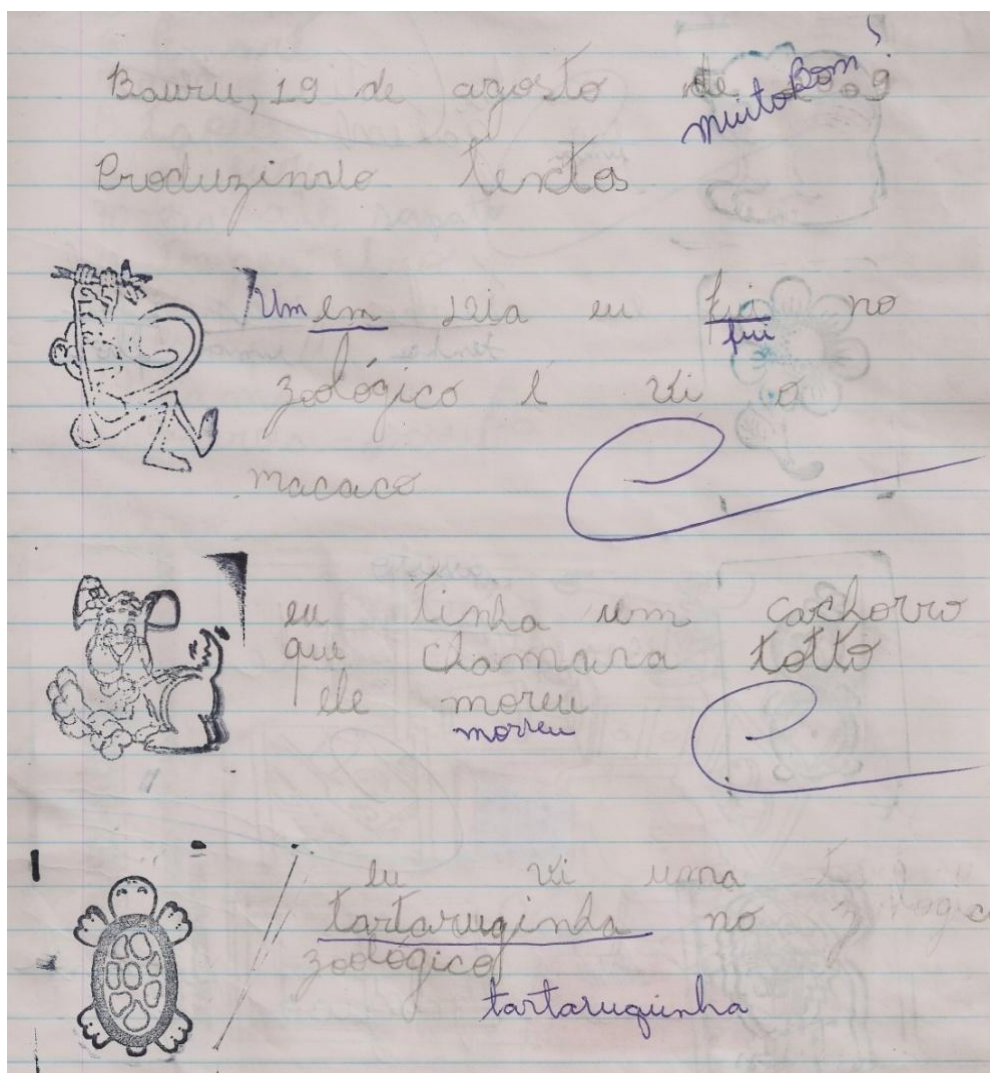 Bauru, 19 de agosto de
muito bom!
Produzindo textos
Um em dia eu fui no
fui
zoológico e vi o
macaco
eu tinha um cachorro
que chamava totto
ele moreu
morreu
eu vi uma
tartaruginha no
zoológico
tartaruguinha